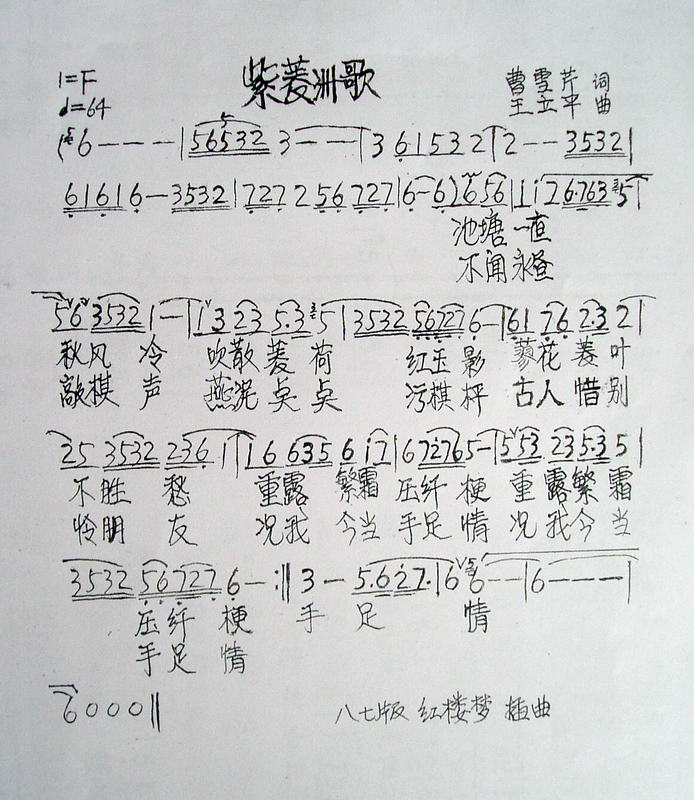 紫菱洲歌
1=F
♩=64
曹雪芹 词
王立平 曲
6 - - - | 56532 3 - - | 3 61532 | 2 - - 3532 |
61616 - 3532 | 727 2 56 727 | 6 - 6) 6 56 | 1 1 2 6·763 5 |
池塘一夜
不闻永昼
56 3532 1 - | 1 3 23 5·3 5 | 3532 5672 7 6 - | 61 76 2·3 2 |
秋风 冷 吹散 菱 荷 红玉 影 蓼花 菱叶
敲棋 声 燕泥 点 点 污棋 枰 古人 惜别
25 3532 236 1 | 1 6 6335 6 i7 | 6 72765 - | 5 53 23 5·3 5 |
不胜 愁 重露 繁霜 压纤 梗 重 露繁 霜
怜朋 友 况我 今当 手足 情 况 我今 当
3532 56 727 6 - :‖ 3 - 5·627· | 6 6 - - | 6 - - - |
压纤 梗 手 足 情
手足 情
6 0 0 0 ‖
八七版 红楼梦 插曲